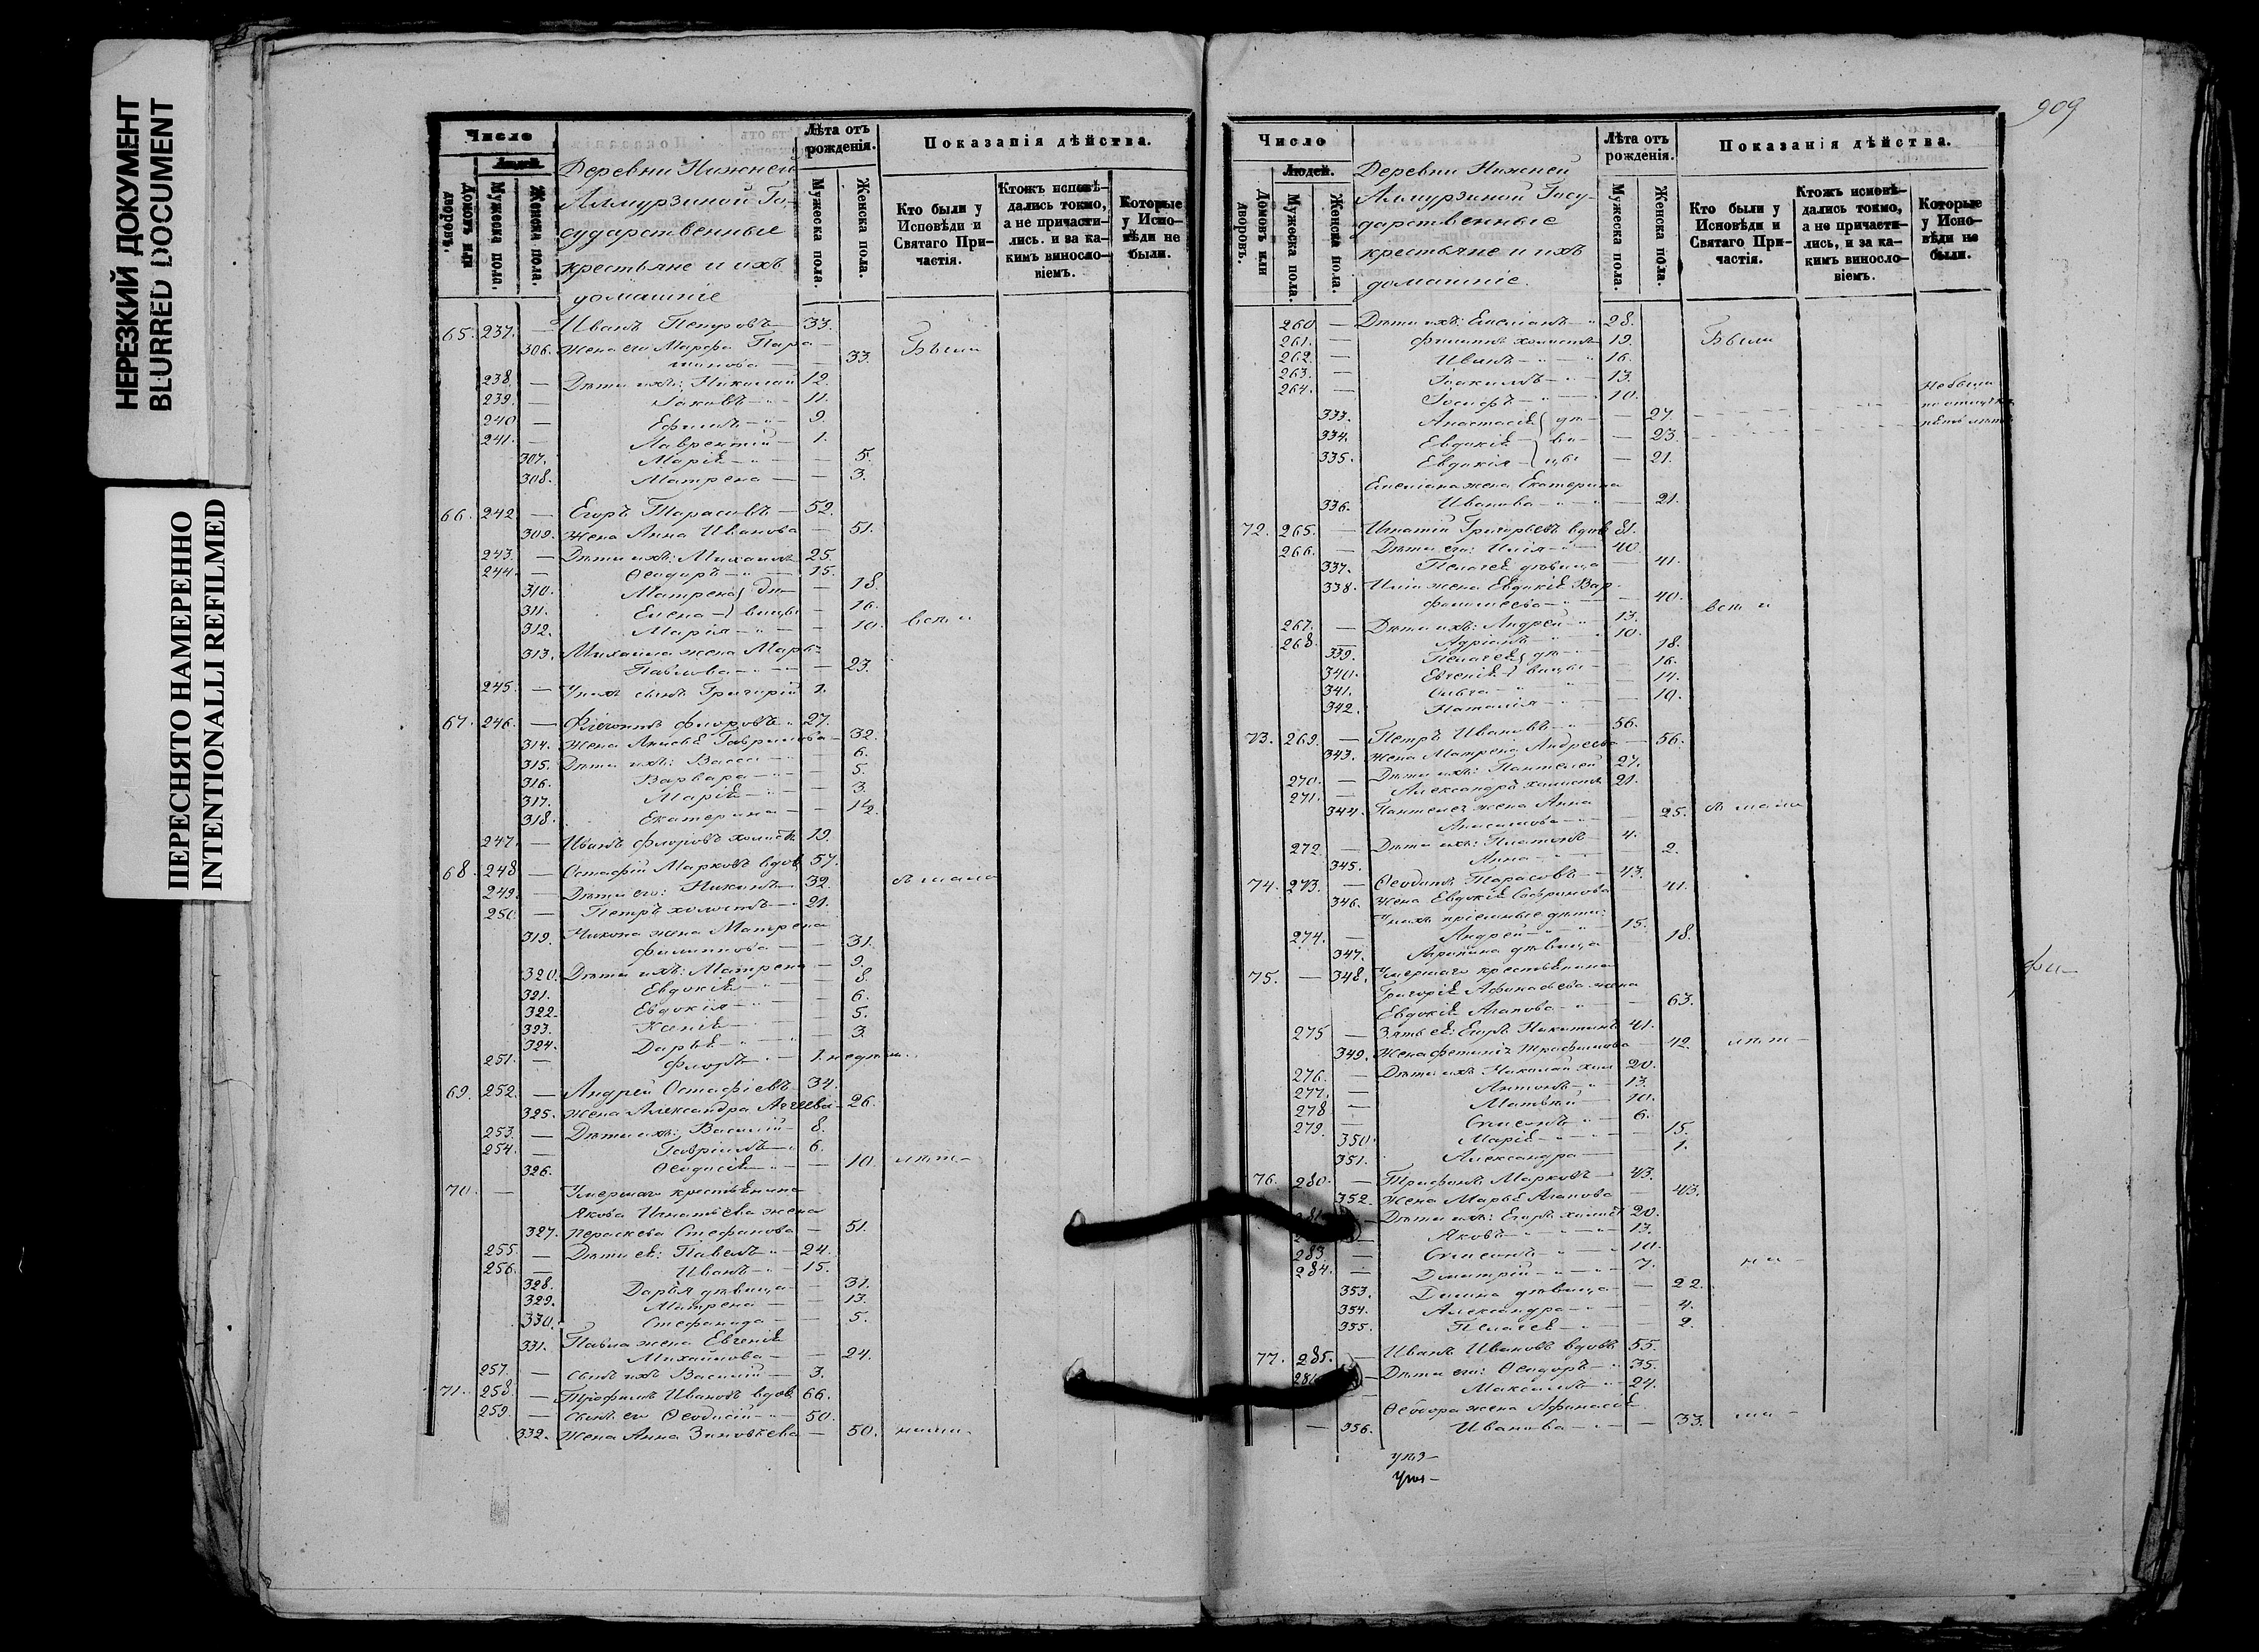 НЕРЕЗКИЙ ДОКУМЕНТ
BLURRED DOCUMENT
ПЕРЕСНЯТО НАМЕРЕННО
INTENTIONALLI REFILMED
Число
Людей.
Домовъ или дворовъ.
Мужеска пола.
Женска пола.
Деревни Нижней
Алмурзиной Го-
сударственные
крестьяне и ихъ
домашніе
Лѣта отъ рожденія.
Мужеска пола.
Женска пола.
Показанія дѣйства.
Кто были у Исповѣди и Святаго Причастія.
Ктожъ исповѣдались токмо, а не причастились. и за какимъ винословіемъ.
Которые у Исповѣди не были.
65. 237. — Иванъ Петровъ — 33.
306. Жена его Марфа Пара- Были
— 33.
238. — Дѣти ихъ: Николай 12.
239. — Іаковъ — 11.
240 — Ефимъ — 9.
241. — Лаврентій — 1.
307. Марія — 5.
308. Матрена — 3.
66. 242 — Егоръ Тарасовъ — 52.
309. Жена Анна Иванова — 51.
243. — Дѣти ихъ: Михаилъ 25.
244. — Ѳеодоръ — 15.
310. Матрена дѣ- — 18.
311. Елена — вицы — 16.
312. Марія — 10.
313. Михаила жена Марья
Павлова — 23.
245. — У нихъ сынъ Григорій 1.
67. 246. — Флоровъ 27.
314. Жена Гаврилова — 32.
315. Дѣти ихъ: Васса — 6.
316. Варвара — 5.
317. Марія — 3.
318. Екатерина — 1½.
247. — Иванъ Флоровъ холостъ 19.
68. 248 — Остафій Марковъ вдов 57.
249. — Дѣти его: Никонъ — 32.
250. — Петръ холостъ — 21.
319. Никона жена Матрена
Филиппова — 31.
320. Дѣти ихъ: Матрена — 9.
321. Евдокія — 8.
322. Евдокія — 6.
323. Ксенія — 5.
324. Дарья — 3.
251. — Флоръ — 1.
69. 252. — Андрей Остафіевъ — 34.
325. Жена Александра — 26.
253. — Дѣти ихъ: Василій — 8.
254. — Гавріилъ — 6.
326. Ѳеодосія — 10.
70. — Умершаго крестьянина
Якова Игнатьева жена
327. Параскева Стефанова — 51.
255. — Дѣти ея: Павелъ — 24.
256. — Иванъ — 15.
328. Дарья дѣвица — 31.
329. Матрена — 13.
330. Стефанида — 5.
331. Павла жена Евгенія
Михайлова — 24.
257. — Сынъ ихъ Василій — 3.
71. 258. — Трофимъ Ивановъ вдов. 66.
259. — Сынъ его Ѳеодосій — 50.
332. Жена Анна Зиновьева — 50.
909
Число
Людей.
Домовъ или дворовъ.
Мужеска пола.
Женска пола.
Деревни Нижней
Алмурзиной Госу-
дарственные
крестьяне и ихъ
домашніе.
Лѣта отъ рожденія.
Мужеска пола.
Женска пола.
Показанія дѣйства.
Кто были у Исповѣди и Святаго Причастія.
Ктожъ исповѣдались токмо, а не причастились, и за какимъ винословіемъ.
Которые у Исповѣди не были.
260 — Дѣти ихъ: Емеліанъ — 28.
261. — Филиппъ холостъ 19. Были
262. — Иванъ — 16.
263. — Іоакимъ — 13.
264. — Іосифъ — 10.
333. Анастасія дѣ- — 27.
334. Евдокія ви- — 23.
335. Евдокія — цы — 21.
Емеліана жена Екатерина
336. Иванова — 21.
72. 265. — Игнатій Григорьевъ вдов 81.
266. — Дѣти его: Илія — 40.
337. Пелагея дѣвица — 41.
338. Иліи жена Евдокія Вар-
фоломеева — 40.
267. — Дѣти ихъ: Андрей — 13.
268. — Адріанъ — 10.
339. Пелагея дѣ- — 18.
340. Евгенія — вицы — 16.
341. Ольга — 14.
342. Наталія — 10.
73. 269. — Петръ Ивановъ — 56.
343. Жена Матрена Андреева — 56.
270. — Дѣти ихъ: Пантелей 27.
271. — Александръ холостъ 21.
344. Пантелея жена Анна
— 25.
272. — Дѣти ихъ: Платонъ — 4.
345. Анна — 2.
74. 273. — Ѳеодотъ Тарасовъ — 43.
346. Жена Евдокія Софронова 41.
У нихъ пріемные дѣти:
274. — Андрей — 15.
347. Агрипина дѣвица 18.
75. — 348. Умершаго крестьянина
Григорія Афанасьева жена
Евдокія Агапова — 63.
275 — Зять ея: Егоръ Никитинъ 41.
349. Жена Фетинія Трофимова — 42.
276. — Дѣти ихъ Николай хол 20.
277. — Антонъ — 13.
278 — Матвѣй — 10.
279. — Симеонъ — 6.
350. Марія — 15.
351. Александра — 1.
76. 280. — Трифонъ Марковъ — 43.
352. Жена Марья Агапова — 43.
— Дѣти ихъ: Егоръ холост 20.
— Яковъ — 13.
283. — Симеонъ — 10.
284. — Димитрій — 7.
353. дѣвица — 22.
354. Александра — 4.
355. Пелагея — 2.
77. 285. — Иванъ Ивановъ вдовъ 55.
— Дѣти его: Ѳеодоръ — 35.
— Максимъ — 24.
Ѳеодора жена Афанасія
— 356. Иванова — 33.